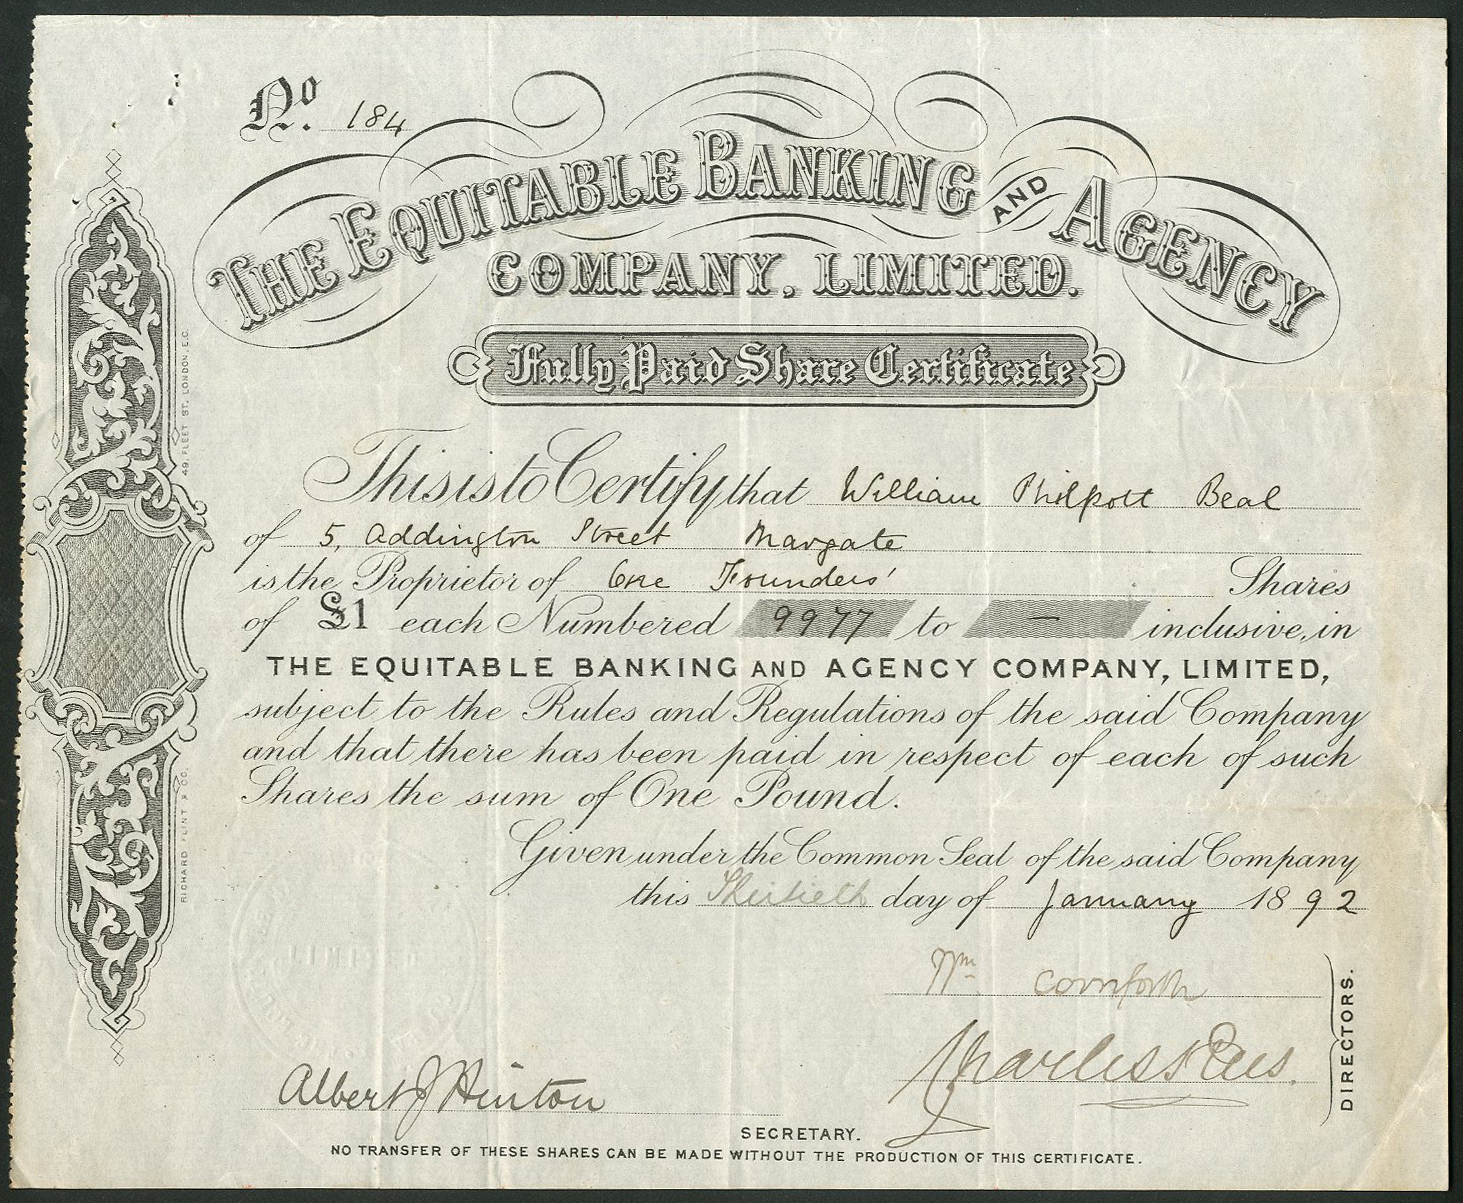 No. 184
THE EQUITABLE BANKING AND AGENCY
COMPANY, LIMITED.
Fully Paid Share Certificate
This is to Certify that William Philpott Beal
of 5, Addington Street Margate
is the Proprietor of One Founders' Shares
of £1 each Numbered 9977 to — inclusive, in
THE EQUITABLE BANKING AND AGENCY COMPANY, LIMITED,
subject to the Rules and Regulations of the said Company
and that there has been paid in respect of each of such
Shares the sum of One Pound.
Given under the Common Seal of the said Company
this Thirtieth day of January 1892
Wm Cornforth
Charles
DIRECTORS.
Albert J Hinton
SECRETARY.
NO TRANSFER OF THESE SHARES CAN BE MADE WITHOUT THE PRODUCTION OF THIS CERTIFICATE.
RICHARD FLINT & CO. 49, FLEET ST. LONDON, E.C.